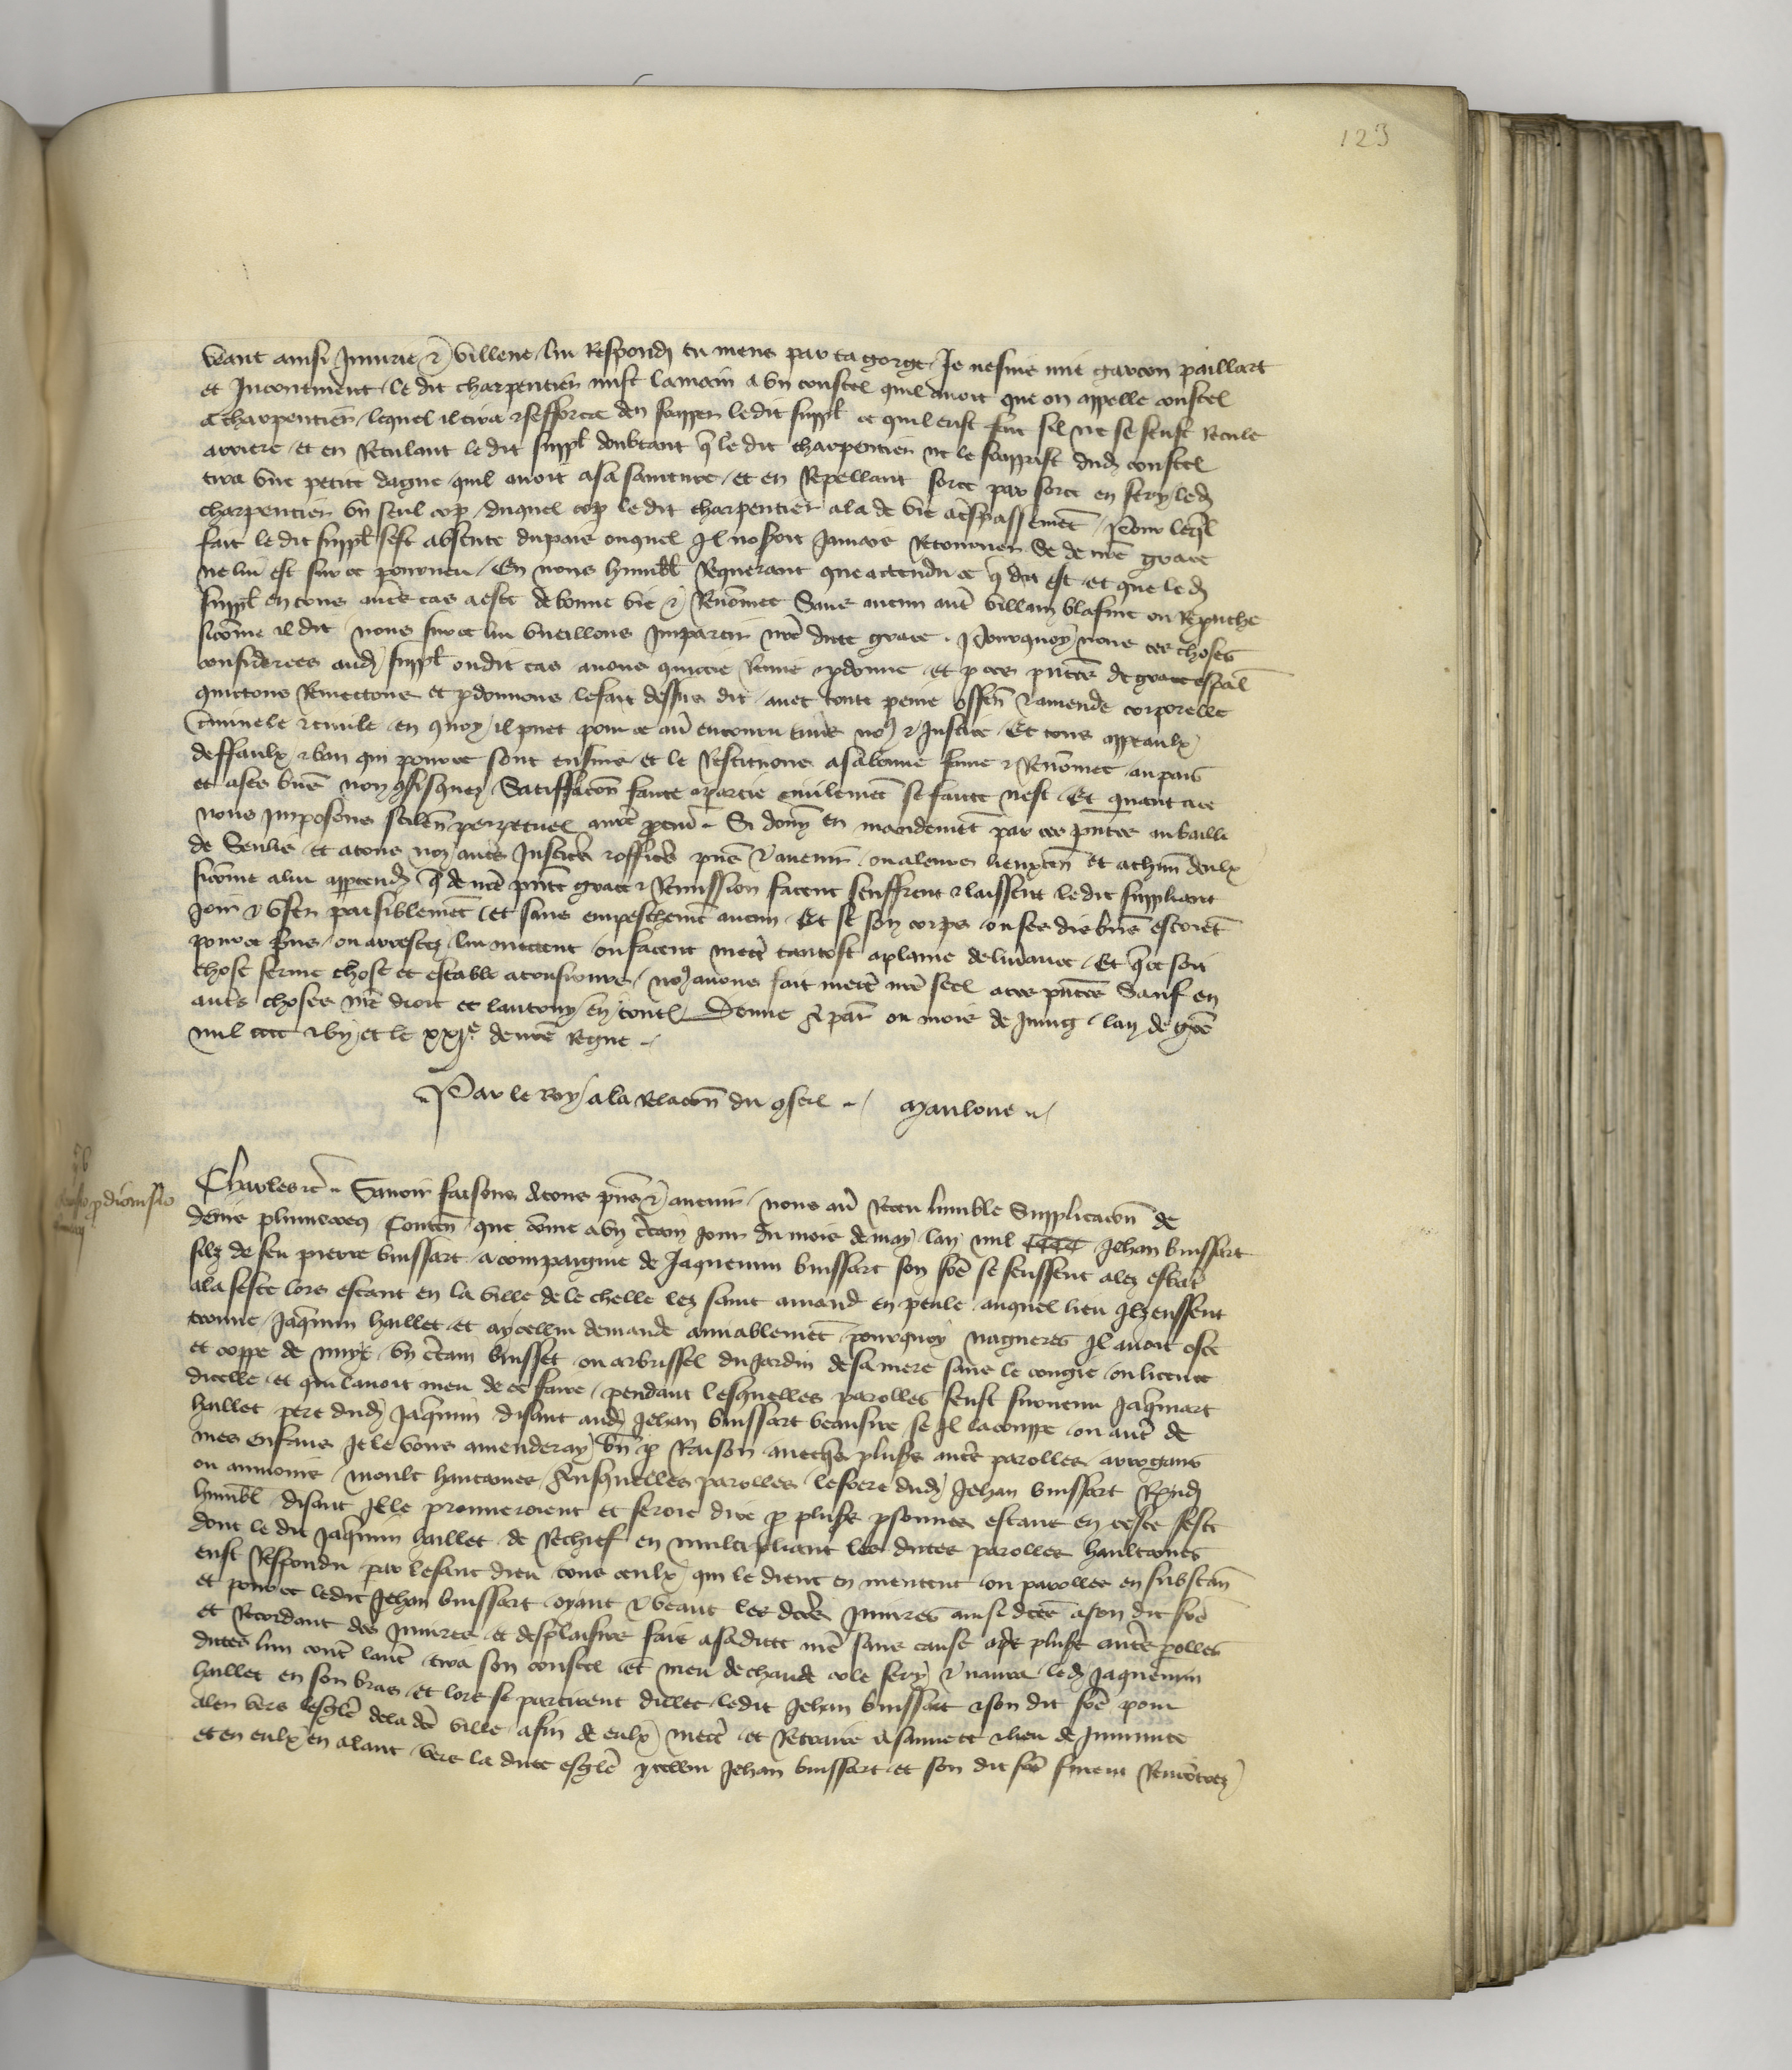 123
veant ainsi Iniurie & villene lui Respondi tu mens par ta gorge Je ne suis mie garcon paillart
et Incontinent le dit charpentier mist la main a un coustel quil auoit que on appelle coustel
a charpentier lequel il tira & sefforca den frapper ledit suppl ce quil eust fait sil ne se feust Recule
arriere et en Reculant le dit suppl doubtant q le dit charpentier ne le frappast dud coustel
tira vne petite dague quil auoit a sa sainture et en Repellant force par force en fery led
charpentier vn seul cop duquel cop le dit charpentier ala de vie a trespassement Pour leql
fait le dit suppl sest absente du pais ouquel Il noseroit Jamais Retourner se de nre grace
ne lui est sur ce pourueu En nous humbl Requerant que attendu ce q dit est et que le d
suppl en tous autres cas a este de bonne vie & Renommee Sans aucun autre villain blasme ou Reprouche
sicomme il dit nous sur ce lui vueillons Impartir nre dicte grace Pourquoy nous ces choses
considerees aud suppl ou dit cas auons quictie Remis & pdonne et p ces pntes de grace espal
quictons Remectons et pdonnons le fait dessus dit auec toute peine offense & amende corporelle
criminele & ciuile en quoy il puet pour ce auoir encouru enuers nous & Justice Et tous appeaulx
deffaulx & ban qui pour ce sont ensuis et le Restituons a sa bonne fame & Renommee au pais
et a ses biens non confisquez Satisfacon faicte a partie ciuilement se faicte nest Et quant a ce
nous Imposons silence perpetuel a nre procureur Si donn en mandement par ces pntes au bailli
de Senlis et a tous noz autres Justiciers & officiers pns & auenir ou a leurs lieuxten et a chun deulx
sicomme a lui appartendra q de nre pnte grace & Remission facent seuffrent & laissent le dit suppliant
Joir & vser paisiblement et sans empeschement aucun Et se son corps ou ses diz biens estoient
pour ce prins ou arrestez lui mettent ou facent mettre tantost a plaine deliurance Et q ce soit
chose ferme chose et estable a tousiours nous auons fait mettre nre seel a ces pntes Sauf en
autres choses nre droit et lautruy en toutes Donne a par ou mois de Juing lan de grace
mil cccc & vij et le xxvije de nre Regne
Par le Roy a la Relacon du conseil Mauloue
Charles & Sauoir faisons a tous pns & auenir nous auoir Receu lumble Supplicacon de
Contenant que comme a un certain Jour du mois de may lan mil cccc Jehan buissart
filz de feu pierre buissart acompaigne de Jaquemin buissart son frere se feussent alez esbatre
a la feste lors estant en la ville de lechelle lez saint amand en peule auquel lieu Ilz eussent
trouue Jaquemin haillet et a ycellui demande amiablement pourquoy nagueres Il auoit oste
et coppe de nuyt un certain buisset ou arbrissel du Jardin de sa mere sans le congie ou licence
dicelle et qui lauoit meu de ce faire pendant lesquelles parolles feust suruenu Jaquemart
haillet pere dud Jaquemin disant aud Jehan buissart beausire se Il la couppe ou autre de
mes enfans Je le vous amenderay bien p Raison auecques plusrs autres parolles arrogans
ou aumoins moult haultaines Ausquelles parolles le frere dud Jehan buissart Respondi
humbl disant Ille prouueroient et feroie dire p plusrs psonnes estans en ceste feste
dont le dit Jaquemin haillet de Rechief en multipliant les dictes parolles haultaines
eust Respondu par le sanc dieu tous ceulx qui le dient en mentent ou parolles en substance
et pour ce ledit Jehan buissart oyant & veant les dictes Iniures ainsi dictes a son dit frere
et Recordant des Iniures et desplaisire fais a sa dicte mere sans cause apres plusrs autres parolles
dictes lun contre lautre tira son coustel et meu de chaude cole fery & naura led Jaquemin
haillet en son bras et lors se partirent dillec ledit Jehan buissart & son dit frere pour
aler vers leglise de la dicte ville afin de eulx mettre et Retraire a sauuete & lieu de Immunite
et en eulx en alant vers la dicte eglise ycellui Jehan buissart et son dit frere furent Rencontrez